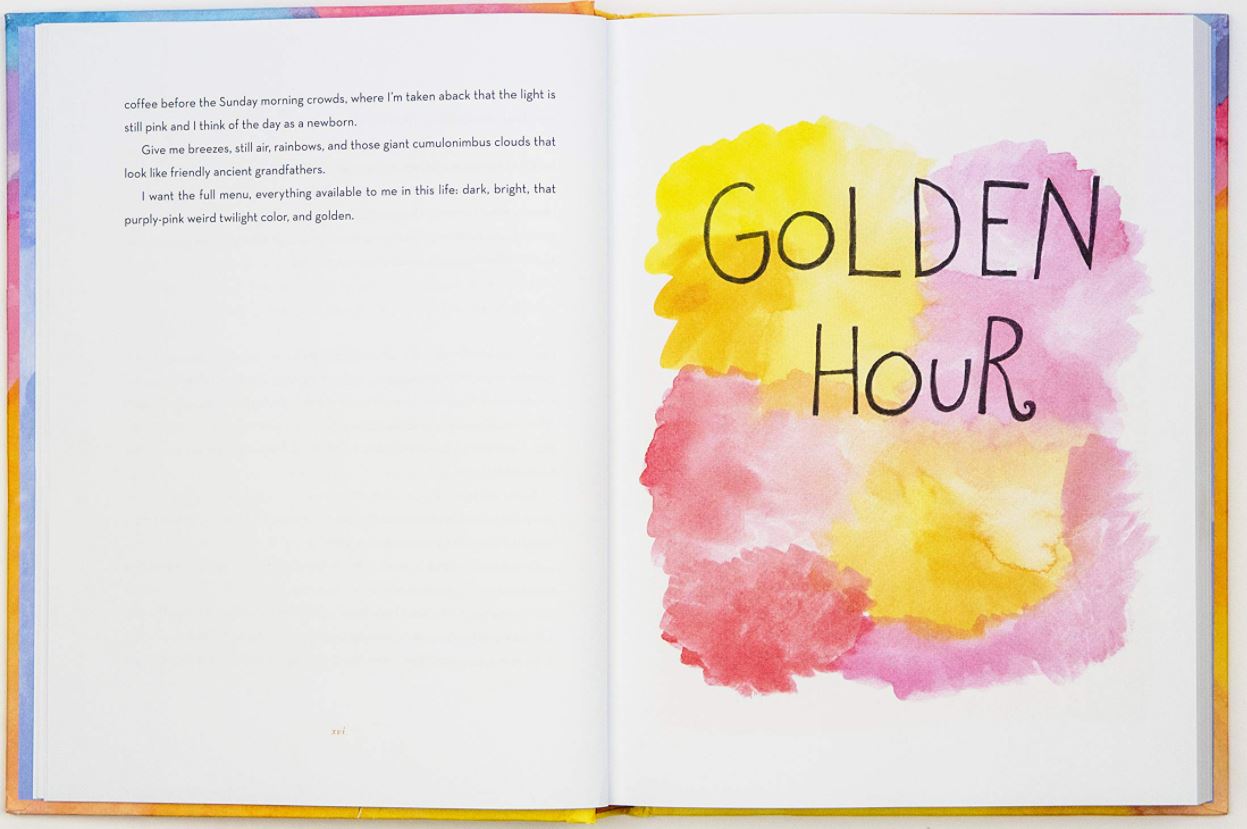 coffee before the Sunday morning crowds, where I'm taken aback that the light is
still pink and I think of the day as a newborn.
Give me breezes, still air, rainbows, and those giant cumulonimbus clouds that
look like friendly ancient grandfathers.
I want the full menu, everything available to me in this life: dark, bright, that
purply-pink weird twilight color, and golden.
xvi
GOLDEN
HOUR